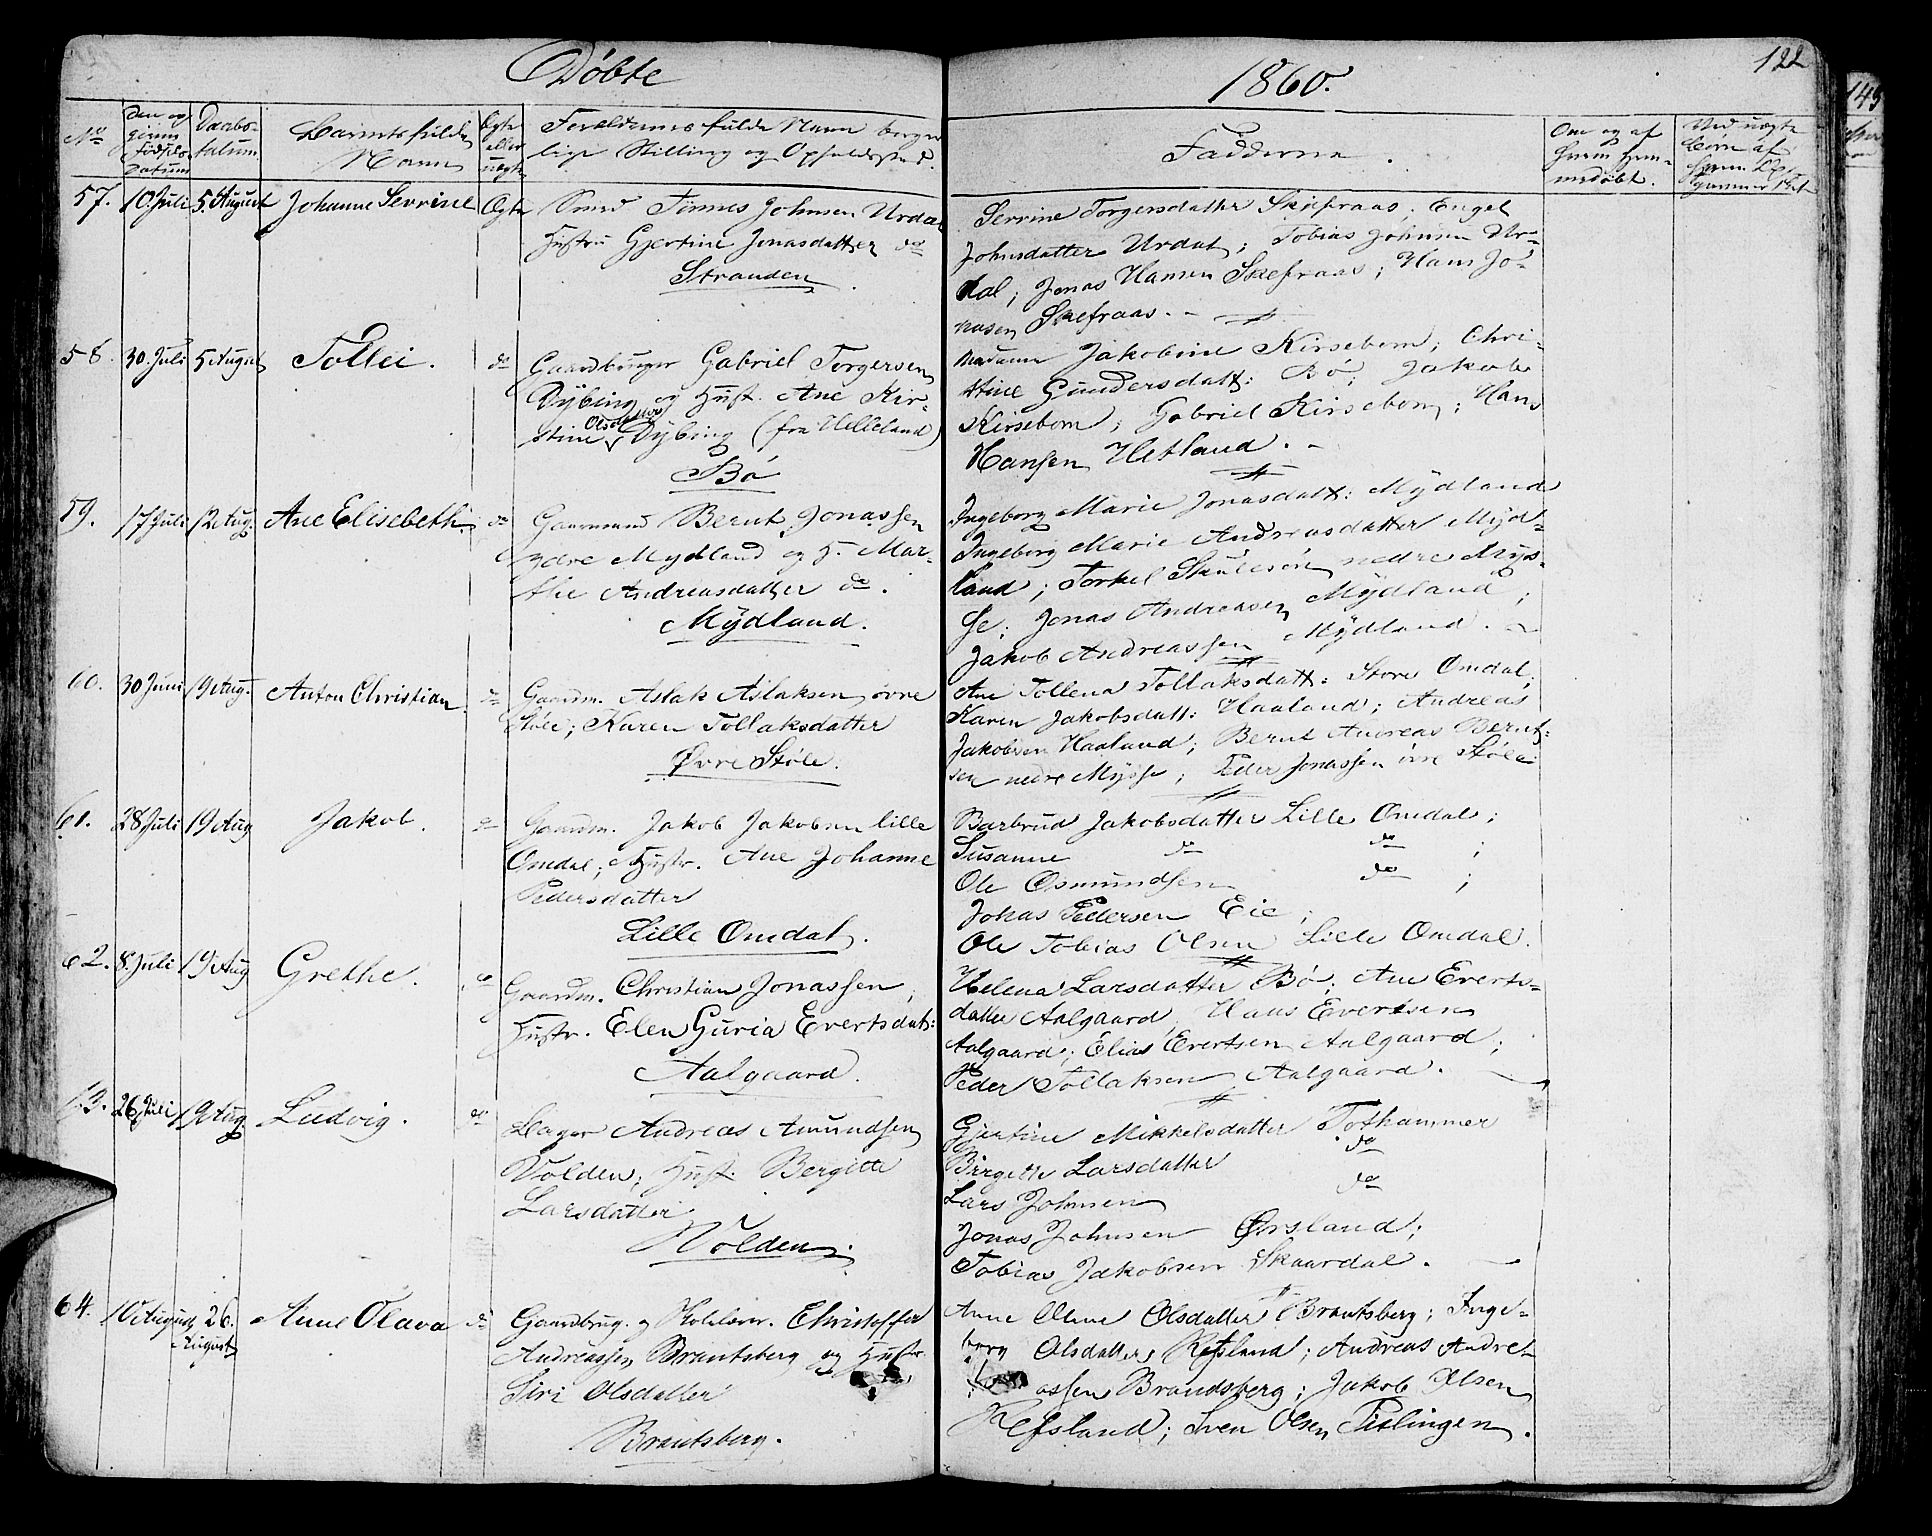 Døbte
1860.
122
149
No
Den og
Fødsels
Datum
Daabs-
datum
Barnets fulde
Navn
Ægte
eller
uægte
Forældrenes fulde Navn borger-
lige Stilling og Opholdssted.
Fadderne.
Om og af
hvem hjem-
medøbt.
Ved uægte
Børn af
57. 10 Juli 5. August Johanne Serrine Ægte
Smed Tønnes Johnsen Urdal
Hustru Gjertine Jonasdatter do
Stranden
Serrine Torgersdatter Skefraas; Engel
Johnsdatter Urdal; Tobias Johnsen Ur-
dal; Jonas Hansen Skefraas; Hans Jo-
nasen Skefraas. -
58. 30. Juli 5 August Tollei. do
Gaardbruger Gabriel Torgersen
Dybing og Hust. Ane Kir-
stine Olsdatter Dybing (fra Helleland)
Bö
Madame Jakobine Kirsebom; Chri-
stine Gundersdatt: Bö; Jakob
Kirsebom; Gabriel Kirsebom; Hans
Hansen Hetland. -
59. 17 Juli 12 Aug. Ane Elisebeth. do
Gaardmand Bernt Jonassen
ydre Mydland og H. Mar-
the Andreasdatter do.
Mydland.
Ingeborg Marie Jonasdatt: Mydland
Ingeborg Marie Andreasdatter Myd-
land; Torkel Skulesön nedre Mys-
se; Jonas Andreasen Mydland;
Jakob Andreassen Mydland.
60. 30 Juni 19 Aug. Anton Christian do
Gaardm. Aslak Aslaksen øvre
Støle; Karen Tollaksdatter
Øvre Støle.
Ane Tollena Tollaksdatt: Store Omdal;
Karen Jakobsdatt: Haaland; Andreas
Jakobsen Haaland; Bernt Andreas Bernt-
sen nedre Mysse; Peder Jonassen øvre Støle
61. 28 Juli 19 Aug Jakob. do
Gaardm. Jakob Jakobsen lille
Omdal; Hustr. Ane Johanne
Pedersdatter
Lille Omdal.
Barbrud Jakobsdatter Lille Omdal;
Susanne do do ;
Ole Osmundsen do ;
Jonas Pedersen Eie;
Ole Tobias Olsen Lille Omdal.
62. 8. Juli 19 Aug Grethe. do
Gaardm. Christian Jonassen;
Hustr. Elen Guria Evertsdat:
Aalgaard.
Helena Larsdatter Bö; Ane Everts-
datter Aalgaard, Hans Evertsen
Aalgaard; Elias Evertsen Aalgaard;
Peder Tollaksen Aalgaard.
63. 26 Juli 19 Aug Ludvig. do
Bager Andreas Amundsen
Volden; Hust. Bergitte
Larsdatter
Volden.
Gjertine Mikkelsdatter Tothammer
Birgitte Larsdatter do
Lars Johnsen do
Jonas Johnsen Ørsland;
Tobias Jakobsen Skaardal.
64. 10 August 26. August Anne Olava do
Gaardbrug. og Christoffer
Andreassen Brantsberg og Hustr.
Siri Olsdatter
Brantsberg.
Anne Oline Olsdatter Brantsberg; Inge-
borg Olsdatter Refsland; Andreas Andre-
assen Brandsberg; Jakob Olsen
Refsland; Sven Olsen Pislingen.